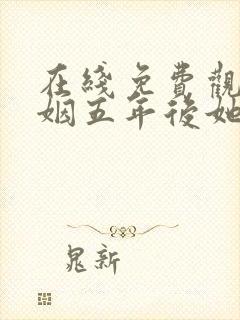 在綫免費觀
姻五年後她
晁新